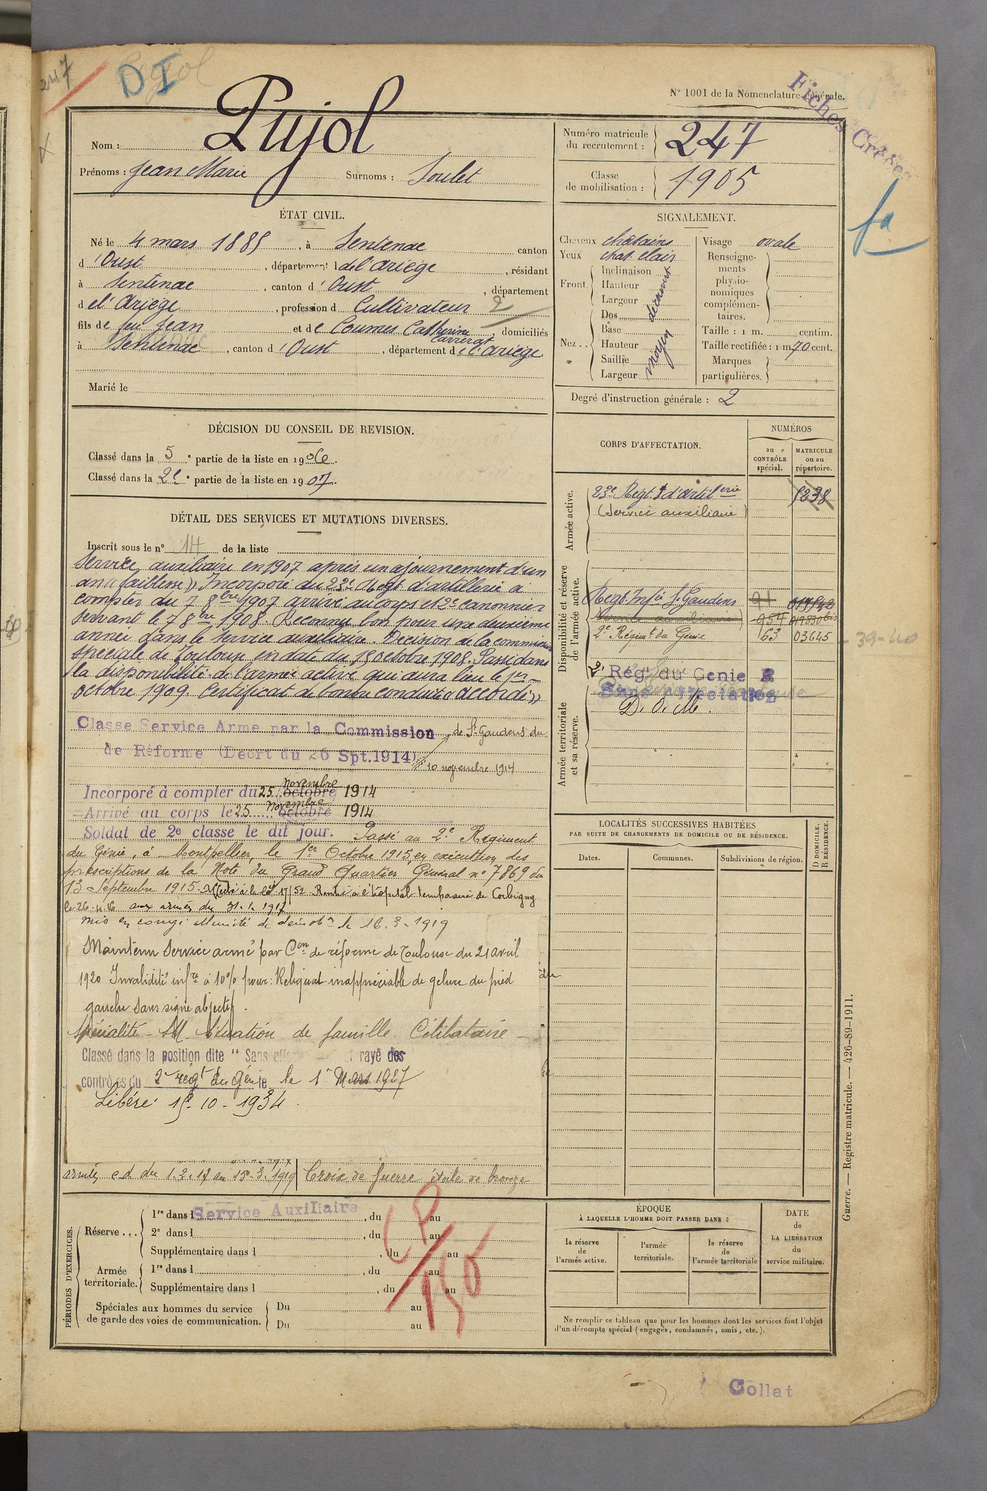 247
D I
Pujol
N° 1001 de la Nomenclature générale.
Fiches Créées
fa
Nom : Pujol
Prénoms : Jean Marie Surnoms : Soulet
Numéro matricule du recrutement : 247
Classe de mobilisation : 1905
ÉTAT CIVIL.
Né le 4 mars 1885, à Sentenac canton
d'Oust, département de l'Ariège, résidant
à Sentenac, canton d'Oust, département
d el'Ariège, profession d Cultivateur
fils de feu Jean et de Coumes Catherine, domiciliés
à Sentenac, canton d'Oust, département de l'Ariège
Marié le
SIGNALEMENT.
Cheveux châtains Visage ovale
Yeux chat. clair
Front. Inclinaison Hauteur Largeur
Nez. Dos Base Hauteur Saillie Largeur moyen
Renseignements physionomiques complémentaires.
Taille : 1 m. centim.
Taille rectifiée : 1 m 70 cent.
Marques particulières.
Degré d'instruction générale : 2
DÉCISION DU CONSEIL DE REVISION.
Classé dans la 5e partie de la liste en 1906.
Classé dans la 2e partie de la liste en 1907.
CORPS D'AFFECTATION.
NUMÉROS
au CONTRÔLE spécial.
MATRICULE ou au répertoire.
Armée active.
23e Régt d'artillerie
(Service auxiliaire)
Disponibilité et réserve de l'armée active.
Régt Infie St Gaudens
2e Régiment du Génie 63 03645
39-40
2e Rég. du Genie R
Sans affectation
Armée territoriale et sa réserve.
DÉTAIL DES SERVICES ET MUTATIONS DIVERSES.
Inscrit sous le n° 14 de la liste
Service auxiliaire en 1907 après un ajournement d'un
an (faiblesse). Incorporé du 23e Régt d'artillerie à
compter du 7 8bre 1907 arrivé au corps et 2e canonnier
servant le 7 8bre 1908. Reconnu bon pour une deuxième
année dans le service auxiliaire. Décision de la commission
spéciale de Toulouse en date du 15 octobre 1908. Passé dans
la disponibilité de l'armée active qui aura lieu le 1er
octobre 1909. Certificat de bonne conduite accordé
Classe Service Arme par la Commission de St Gaudens du
de Réforme (Décrt du 26 Spt. 1914) 10 novembre 1914
Incorporé à compter du 25 octobre novembre 1914
Arrivé au corps le 25 octobre novembre 1914
Soldat de 2e classe le dit jour. Passé au 2e Régiment
du Génie, à Montpellier, le 1er Octobre 1915, en exécution des
prescriptions de la Note du Grand Quartier Général n° 7869 du
13 Septembre 1915. Rentré à l'hôpital temporaire de Corbigny
le 26-11-16 aux armées du 31.1.1917
mis en congé illimité de démobon le 16.3.1919
Maintenu Service armé par Con de réforme de Toulouse du 21 avril
1920 Invalidité infre à 10% pour : Reliquat inappréciable de gelure du pied
gauche sans signe objectif.
Spécialité - Situation de famille Célibataire
Classé dans la position dite "Sans affectation" et rayé des
contrôles du 2e régt du génie le 1er Mars 1927
Libéré 15-10-1934
armées c.d. du 1.2.17 au 15.3.1919 Croix de Guerre étoile de bronze
LOCALITÉS SUCCESSIVES HABITÉES
PAR SUITE DE CHANGEMENTS DE DOMICILE OU DE RÉSIDENCE.
Dates. Communes. Subdivisions de région. D DOMICILE. R RÉSIDENCE.
PÉRIODES D'EXERCICES.
Réserve ... 1re dans l Service Auxiliaire, du au
2e dans l, du au
Supplémentaire dans l, du au
Armée territoriale. 1re dans l, du au
Supplémentaire dans l, du au
Spéciales aux hommes du service de garde des voies de communication. Du au
Du au
CP
150
ÉPOQUE
À LAQUELLE L'HOMME DOIT PASSER DANS :
la réserve de l'armée active.
l'armée territoriale.
la réserve de l'armée territoriale
DATE de LA LIBÉRATION du service militaire.
Ne remplir ce tableau que pour les hommes dont les services font l'objet
d'un décompte spécial (engagés, condamnés, omis, etc.).
Guerre. — Registre matricule. — 426-89-1911.
Collat